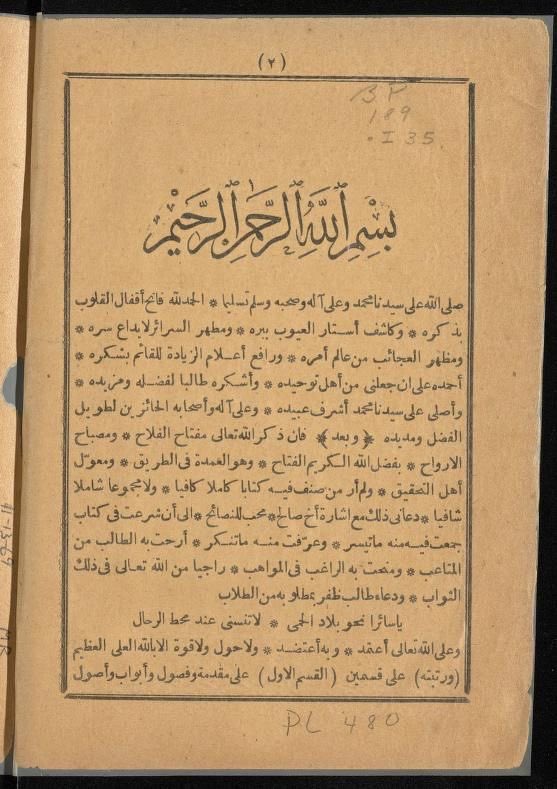 (٢)
BP
189
.I35
بِسْمِ اللَّهِ الرَّحْمَنِ الرَّحِيمِ
صلى الله على سيدنا محمد وعلى آله وصحبه وسلم تسليما * الحمد لله فاتح أقفال القلوب
بذكره * وكاشف أستار العيوب ببره * ومطهر السرائر لايداع سره *
ومظهر العجائب من عالم أمره * ورافع أعلام الزيادة للقائم بشكره *
أحمده على ان جعلنى من أهل توحيده * وأشكره طالبا لفضله ومزيده *
وأصلى على سيدنا محمد أشرف عبيده * وعلى آله وأصحابه الحائزين لطويل
الفضل ومديده ﴿وبعد﴾ فان ذكر الله تعالى مفتاح الفلاح * ومصباح
الارواح * بفضل الله الكريم الفتاح * وهو العمدة فى الطريق * ومعوّل
أهل التحقيق * ولم أر من صنف فيه كتابا كاملا كافيا * ولا مجموعا شاملا
شافيا * دعانى ذلك مع اشارة أخ صالح * محب للنصائح * الى أن شرعت فى كتاب
جمعت فيه منه ماتيسر * وعرّفت منه ماتنكر * أرحت به الطالب من
المتاعب * ومنحت به الراغب فى المواهب * راجيا من الله تعالى فى ذلك
الثواب * ودعاء طالب ظفر بمطلوبه من الطلاب
ياسائرا نحو بلاد الحمى * لاتنسنى عند محط الرحال
وعلى الله تعالى أعتمد * وبه أعتضد * ولاحول ولاقوة الابالله العلى العظيم
(ورتبته) على قسمين (القسم الاول) على مقدمة وفصول وأبواب وأصول
PL 480
11-1369